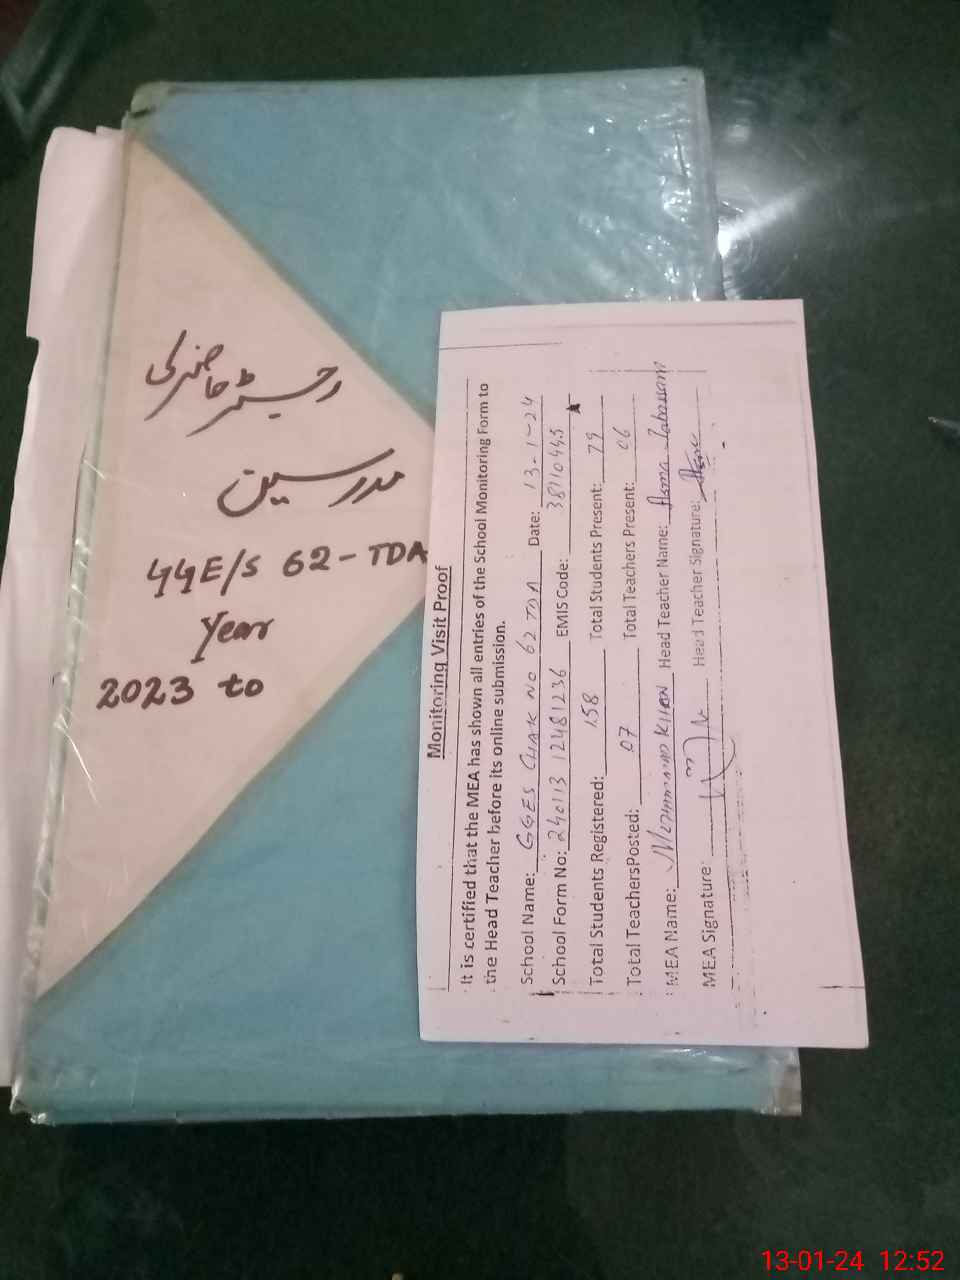 رجسٹر حاضری
مدرسین
GGE/S 62-TDA
Year
2023 to
Monitoring Visit Proof
It is certified that the MEA has shown all entries of the School Monitoring Form to
the Head Teacher before its online submission.
School Name: GGES CHAK NO 62 TDA Date: 13-1-24
School Form No: 240113 12481236 EMIS Code: 38110445
Total Students Registered: 158 Total Students Present: 79
Total TeachersPosted: 07 Total Teachers Present: 06
MEA Name: Mohammad KHAN Head Teacher Name: Asma Tabassam
MEA Signature: Head Teacher Signature:
13-01-24 12:52